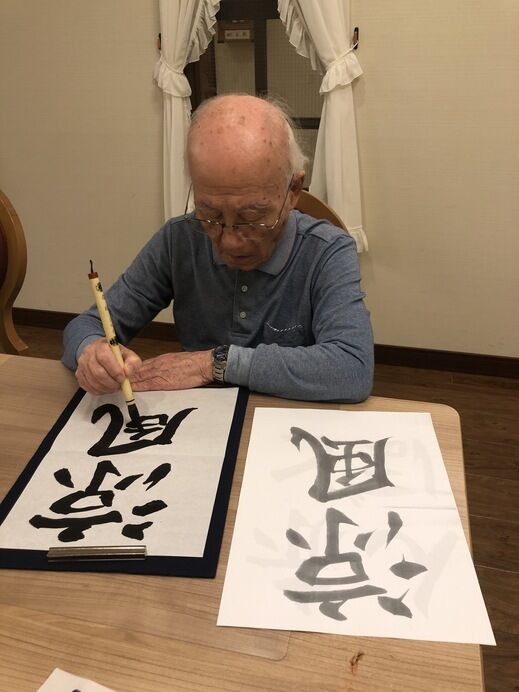 涼風
涼風